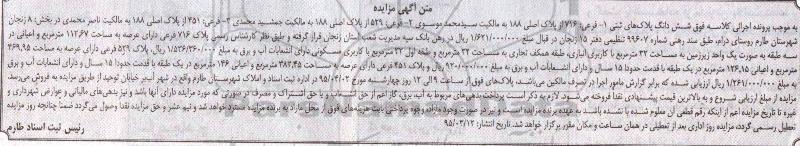 متن آگهی مزایده
به موجب پرونده اجرائی کلاسه فوق شش دانگ پلاک‌های ثبتی ۱- فرعی: ۷۱۶ از پلاک اصلی ۱۸۸ به مالکیت سیدمحمد موسوی ۲- فرعی: ۵۲۹ از پلاک اصلی ۱۸۸ به مالکیت جمشید محمدی ۳- فرعی: ۴۵۱ از پلاک اصلی ۱۸۸ به مالکیت ناصر محمدی در بخش: ۸ زنجان
شهرستان طارم روستای درام، طبق سند رهنی شماره ۹۹۶۰۷ تنظیمی دفتر ۱۵ زنجان در قبال مبلغ ۱/۶۲۱/۰۰۰/۰۰۰ ریال در رهن بانک سپه مدیریت شعب استان زنجان قرار گرفته و طبق نظر کارشناس رسمی پلاک ۷۱۶ فرعی دارای عرصه به مساحت ۱۱۲.۶۷ مترمربع و اعیانی در
سه طبقه به صورت یک واحد زیرزمین به مساحت ۳۲ مترمربع با کاربری انباری طبقه همکف تجاری به مساحت ۳۲ مترمربع و طبقه اول ۳۲ مترمربع با کاربری مسکونی دارای انشعابات آب و برق به مبلغ ۱/۵۲۶/۳۶۰/۰۰۰ ریال، پلاک ۵۲۹ فرعی دارای عرصه به مساحت ۲۶۹.۹۵
مترمربع و اعیانی ۱۲۶.۱۵ مترمربع در یک طبقه با قدمت حدودا ۱۵ سال و دارای انشعابات آب و برق به مبلغ ۹۲۰/۰۰۰/۰۰۰ ریال و پلاک ۴۵۱ فرعی دارای عرصه به مساحت ۳۸۳.۴۵ مترمربع و اعیانی ۱۴۶ مترمربع در یک طبقه با قدمت حدودا ۱۵ سال و دارای انشعابات آب و برق
به مبلغ ۱/۲۶۱/۰۰۰/۰۰۰ ریال ارزیابی شده که برابر گزارش مامور اجرا در تصرف مالکین می‌باشد. پلاک‌های فوق از ساعت ۹ الی ۱۲ روز چهارشنبه مورخ ۹۵/۰۴/۰۲ در اداره ثبت اسناد و املاک شهرستان طارم واقع در شهر آب‌بر خیابان توحید از طریق مزایده به فروش می‌رسد.
مزایده از مبلغ ارزیابی شروع و به بالاترین قیمت پیشنهادی نقدا فروخته می‌شود. لازم به ذکر است پرداخت بدهی‌های مربوط به آب، برق، گاز اعم از حق انشعاب و یا حق اشتراک و مصرف در صورتی که مورد مزایده دارای آنها باشد و نیز بدهی‌های مالیاتی و عوارض شهرداری و
غیره تا تاریخ مزایده اعم از اینکه رقم قطعی آن معلوم شده یا نشده باشد به عهده برنده مزایده است و نیز در صورت وجود مازاد، وجوه پرداختی بابت هزینه‌های فوق از محل مازاد به برنده مزایده مسترد خواهد شد و نیم عشر و حق مزایده نقدا وصول می‌گردد ضمنا چنانچه روز مزایده
تعطیل رسمی گردد، مزایده روز اداری بعد از تعطیلی در همان ساعت و مکان مقرر برگزار خواهد شد. تاریخ انتشار: ۹۵/۰۳/۱۲
رئیس ثبت اسناد طارم